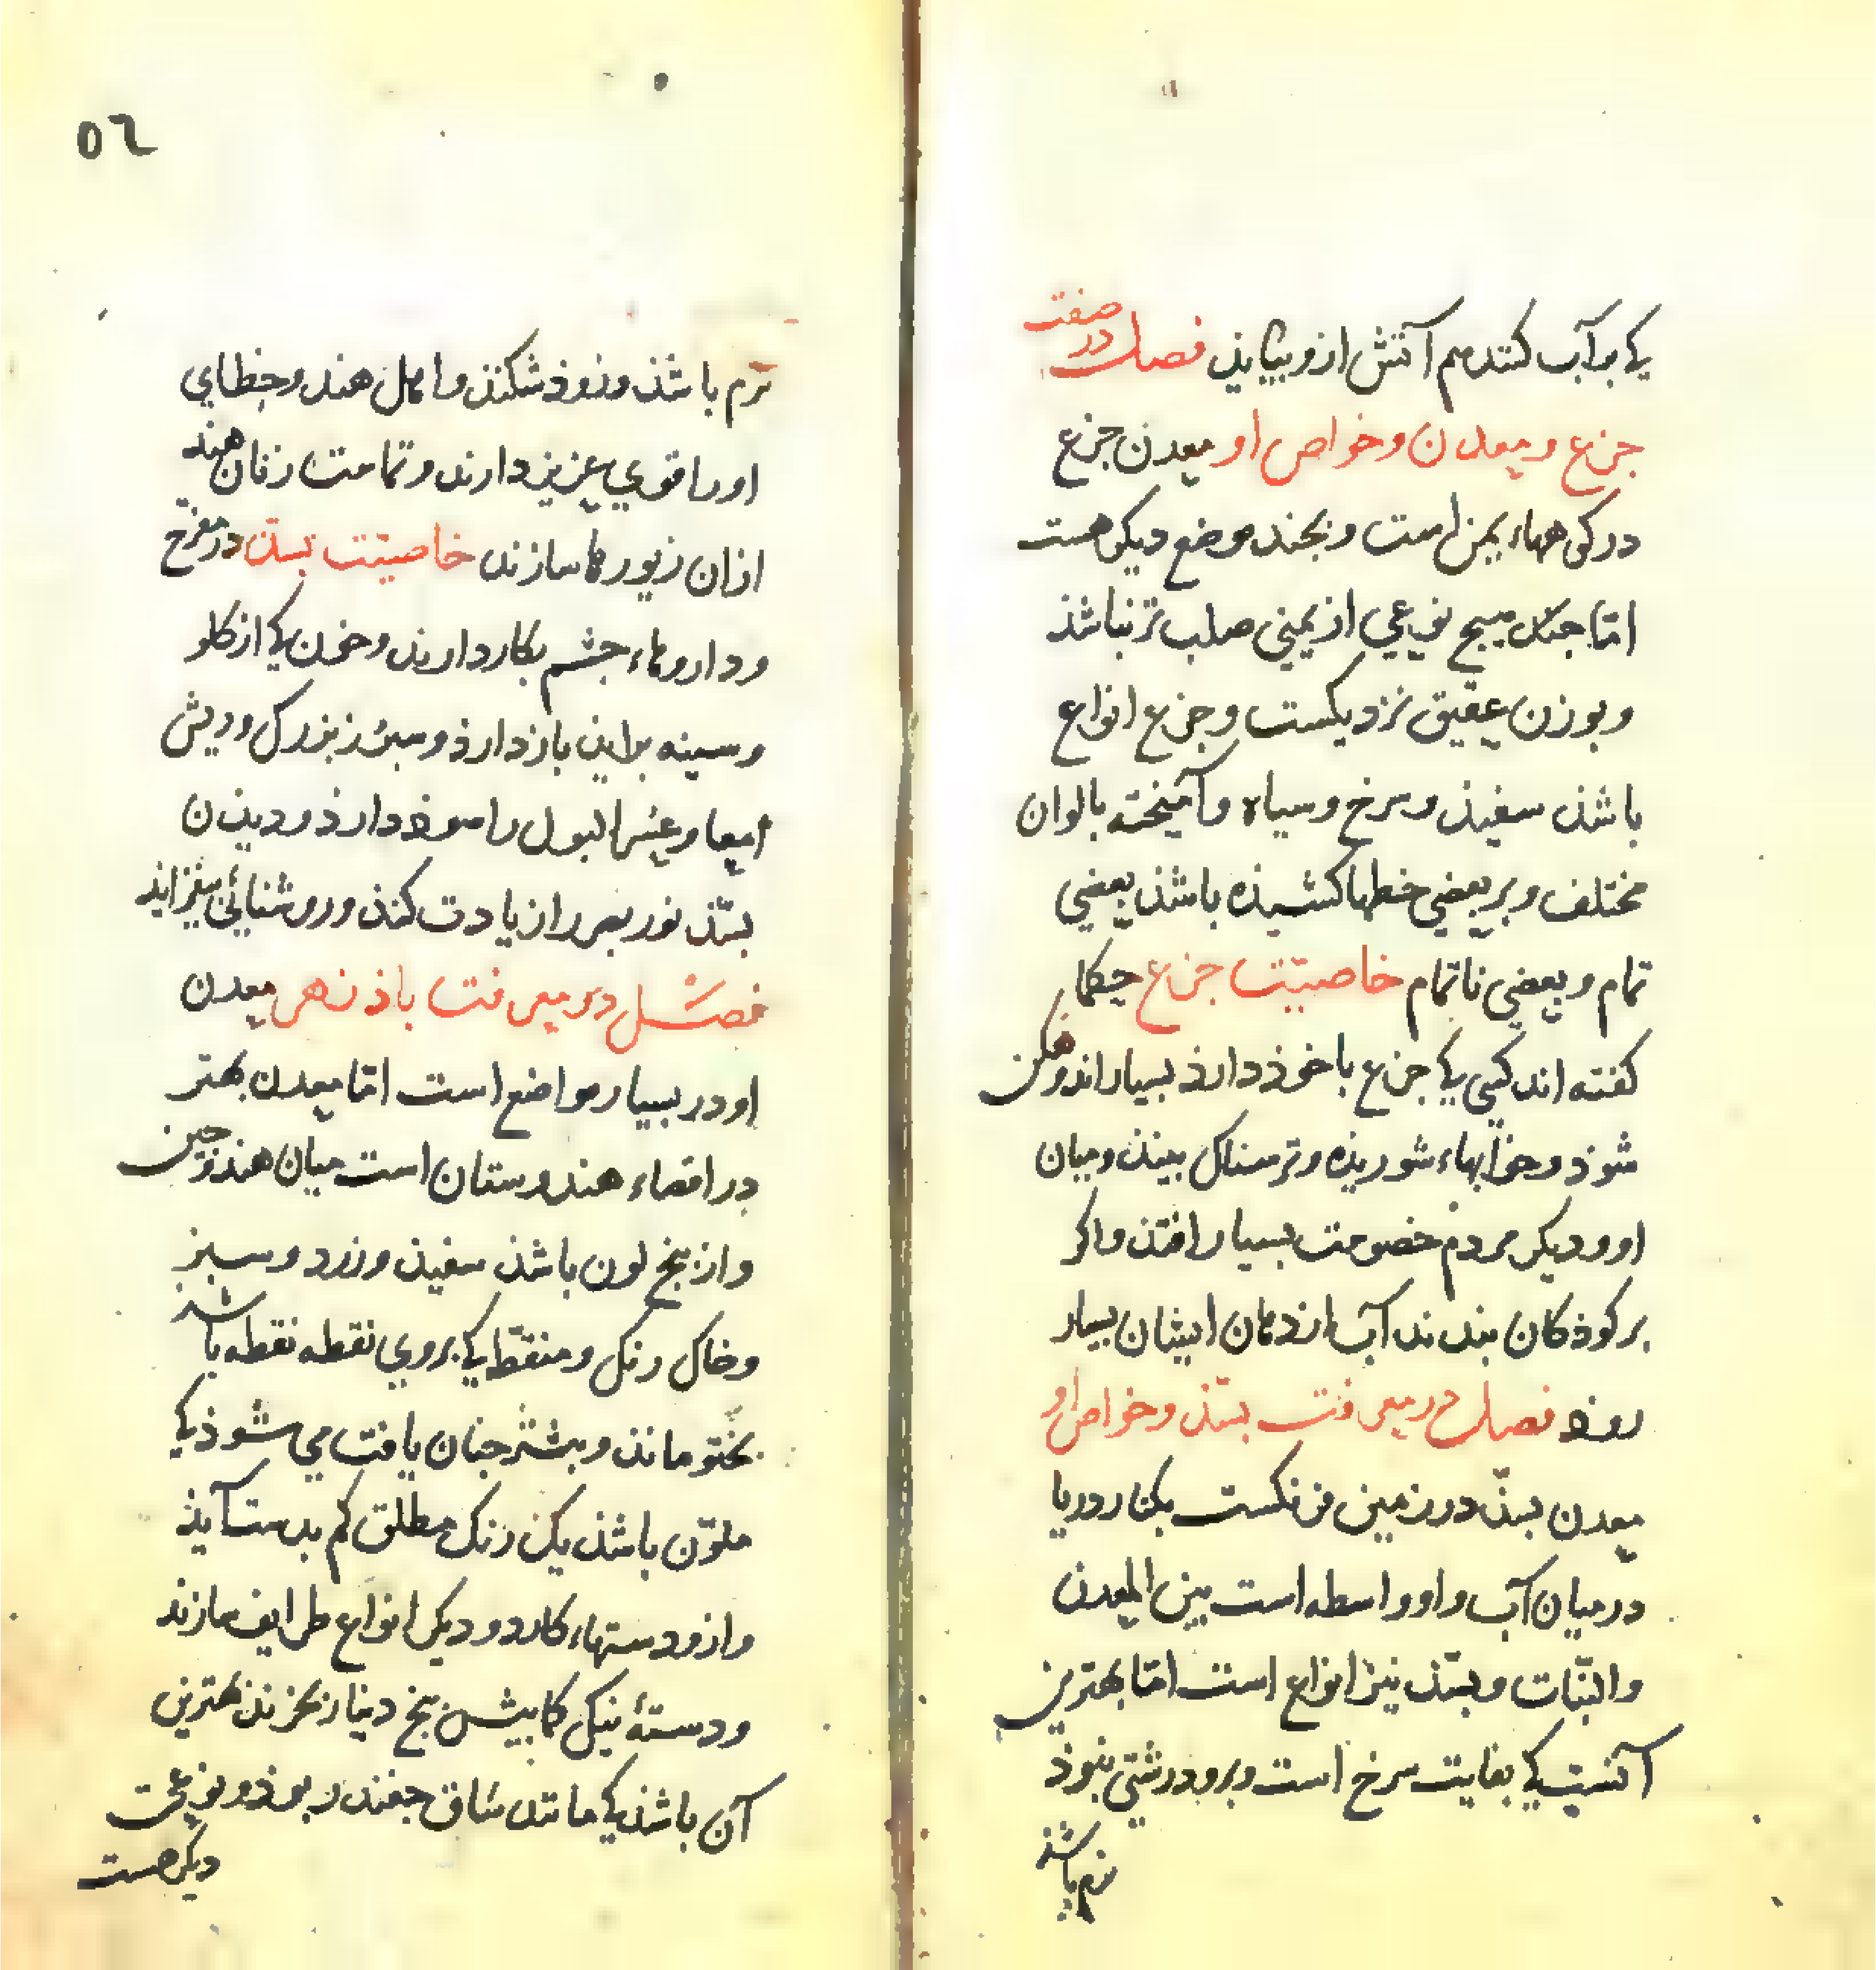 یکی بر آب کنند هم آتش ازو بیاید فصل در صفت
جزع ومعدن وخواص او معدن جزع
در کوهها، یمن است وبچند موضع دیکر هست
امّا جنس هیچ نوعی از یمنی صلب تر نباشذ
وبوزن عقیق نزدیکست وجزع انواع
باشذ سفیذ وسرخ وسیاه وآمیخته بالوان
مختلف وبر بعضی خطها کشیذه باشذ بعضی
تمام وبعضی ناتمام خاصیّت جزع حکما
کفته اند کسی کی جزع باخوذ دارذ بسیار اندوهکن
شوذ وخوابهاء شوریذه وترسناک بیند ومیان
او ودیکر مردم خصومت بسیار افتذ واکر
بر کوذکان بندند آب از دهان ایشان بسیار
روذ فصل در معرفت بسّذ وخواص او
معدن بسّذ در زمین فرنکست بکنار دریا
در میان آب واو واسطه است بین المعدن
والنبّات وبسّذ نیز انواع است امّا بهترین
آنست کی بغایت سرخ است وبرو درشتی نبوذ
نرم باشذ
٥٦
نرم باشذ وزوذ شکنذ واهل هند وخطای
اورا قوی عزیز دارند وتمامت زنان هند
ازان زیورها سازند خاصیّت بسّذ در مفرّح
وداروهاء جشم بکار دارند وخون کی از کلو
وسینه براید باز دارذ وسبرز بزرک وریش
امعا وعسر البول را سوذ دارذ ودیذن
بسّذ نور بصر را زیادت کنذ وروشنائی بیفزایذ
فصل در معرفت باذزهر معدن
او در بسیار مواضع است امّا معدن بهتر
در اقصاء هندوستان است میان هند وچین
واز پنج لون باشذ سفیذ وزرد وسبز
وخاک رنک ومنقّط کی بروی نقطه نقطه باشذ
بختو مانذ وبیشتر جنان یافت می شوذ کی
ملوّن باشذ یک رنک مطلق کم بدست آیذ
وازو دستهاء کارد ودیکر انواع طرایف سازند
ودستۀ نیک کما بیش پنج دینار بخرند بهترین
آن باشذ کی مانند ساق جغندر بوذ ونوعی
دیکر هست